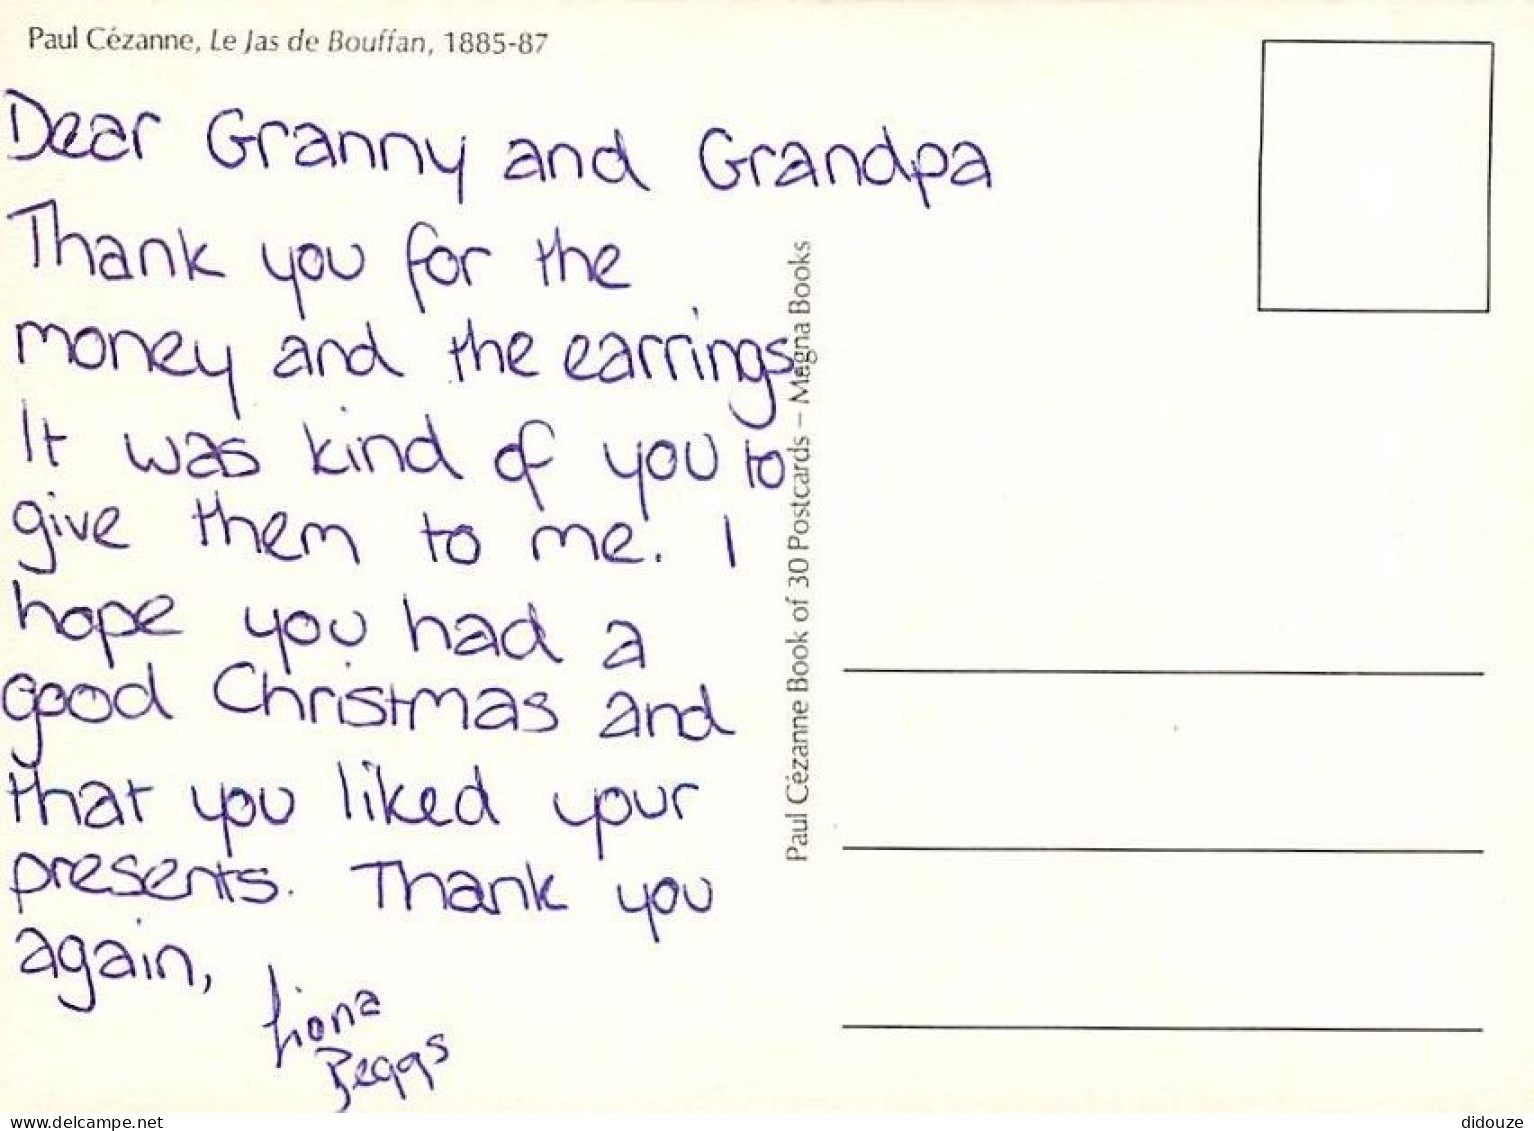 Paul Cézanne, Le Jas de Bouffan, 1885-87
Dear Granny and Grandpa
Thank you for the
money and the earrings.
It was kind of you to
give them to me. I
hope you had a
good Christmas and
that you liked your
presents. Thank you
again,
Fiona
Beggs
Paul Cézanne Book of 30 Postcards – Magna Books
www.delcampe.net
didouze